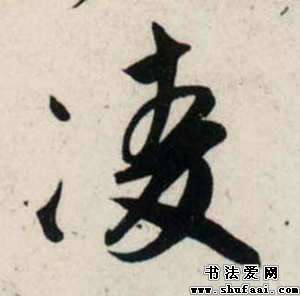 凌
书法爱网
www.shufaai.com